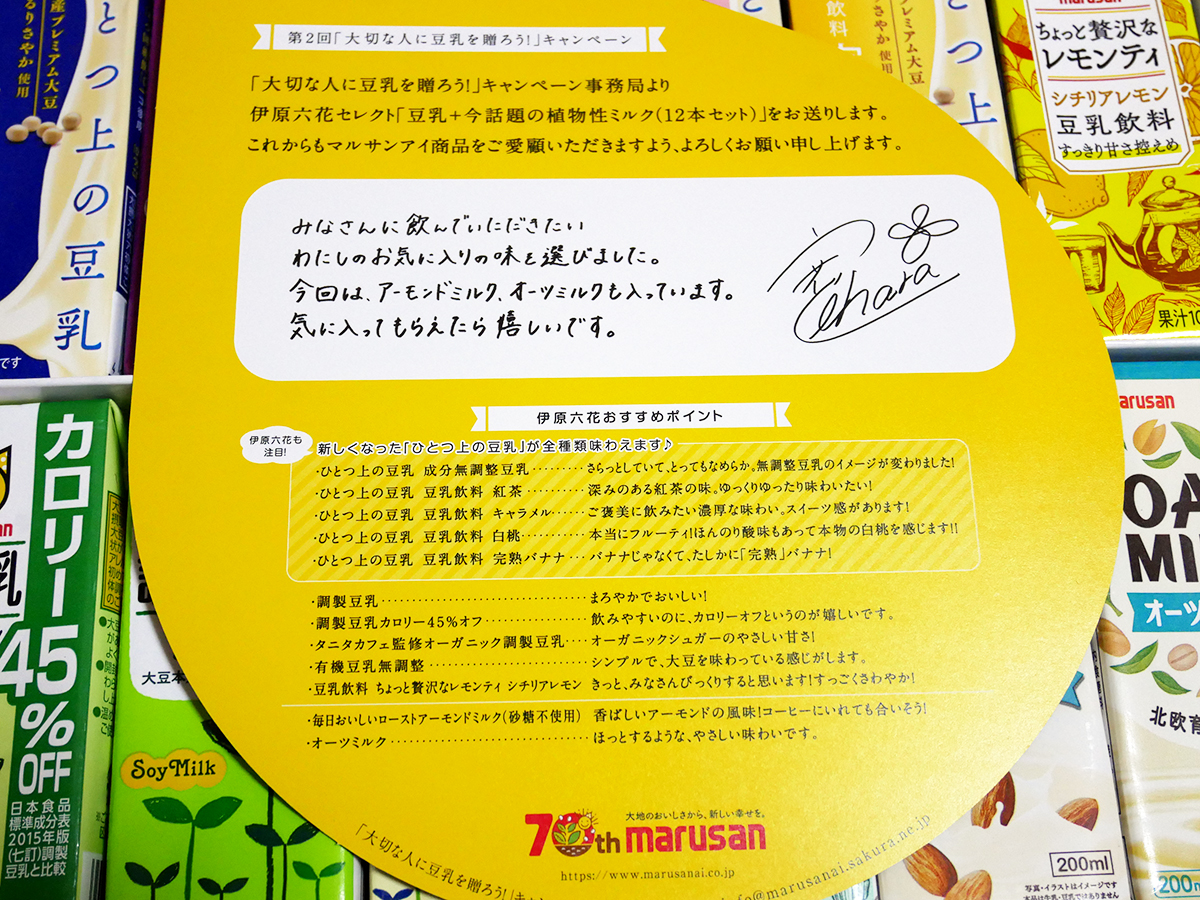 第2回「大切な人に豆乳を贈ろう!」キャンペーン
「大切な人に豆乳を贈ろう!」キャンペーン事務局より
伊原六花セレクト「豆乳+今話題の植物性ミルク(12本セット)」をお送りします。
これからもマルサンアイ商品をご愛顧いただきますよう、よろしくお願い申し上げます。
みなさんに飲んでいただきたい
わたしのお気に入りの味を選びました。
今回は、アーモンドミルク、オーツミルクも入っています。
気に入ってもらえたら嬉しいです。
伊原六花おすすめポイント
伊原六花も
注目!
新しくなった「ひとつ上の豆乳」が全種類味わえます♪
・ひとつ上の豆乳 成分無調整豆乳・・・・・・・・・さらっとしていて、とってもなめらか。無調整豆乳のイメージが変わりました!
・ひとつ上の豆乳 豆乳飲料 紅茶・・・・・・・・・・深みのある紅茶の味。ゆっくりゆったり味わいたい!
・ひとつ上の豆乳 豆乳飲料 キャラメル・・・・・・ご褒美に飲みたい濃厚な味わい。スイーツ感があります!
・ひとつ上の豆乳 豆乳飲料 白桃・・・・・・・・・・本当にフルーティ!ほんのり酸味もあって本物の白桃を感じます!!
・ひとつ上の豆乳 豆乳飲料 完熟バナナ・・・バナナじゃなくて、たしかに「完熟」バナナ!
・調製豆乳・・・・・・・・・・・・・・・・・・・・・・・・・・・・まろやかでおいしい!
・調製豆乳カロリー45%オフ・・・・・・・・・・・・・・飲みやすいのに、カロリーオフというのが嬉しいです。
・タニタカフェ監修オーガニック調製豆乳・・・・オーガニックシュガーのやさしい甘さ!
・有機豆乳無調整・・・・・・・・・・・・・・・・・・・・・・シンプルで、大豆を味わっている感じがします。
・豆乳飲料 ちょっと贅沢なレモンティ シチリアレモン きっと、みなさんびっくりすると思います!すっごくさわやか!
・毎日おいしいローストアーモンドミルク(砂糖不使用) 香ばしいアーモンドの風味!コーヒーにいれても合いそう!
・オーツミルク・・・・・・・・・・・・・・・・・・・・・・・・・・ほっとするような、やさしい味わいです。
70th
大地のおいしさから、新しい幸せを。
marusan
https://www.marusanai.co.jp
「大切な人に豆乳を贈ろう!」キャン
info@marusanai.sakura.ne.jp
とつ上の豆乳
産プレミアム大豆
るりさやか 使用
です
飲料
プレミアム大豆
さやか 使用
とつ上
marusan
ちょっと贅沢な
レモンティ
シチリアレモン
豆乳飲料
すっきり甘さ控えめ
果汁10
カロリー
45
%
OFF
乳
日本食品
標準成分表
2015年版
(七訂)調製
豆乳と比較
大豆本
Soy Milk
marusan
OA
MI
オーツ
北欧育
200ml
写真・イラストはイメージです
本品は牛乳・豆乳ではありません
200m